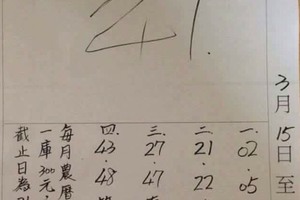 21.
3月15日至
一.
02.05
二.
21.22
三.
27.47
四.
43.48
每月農曆
一庫300元.
截止日為